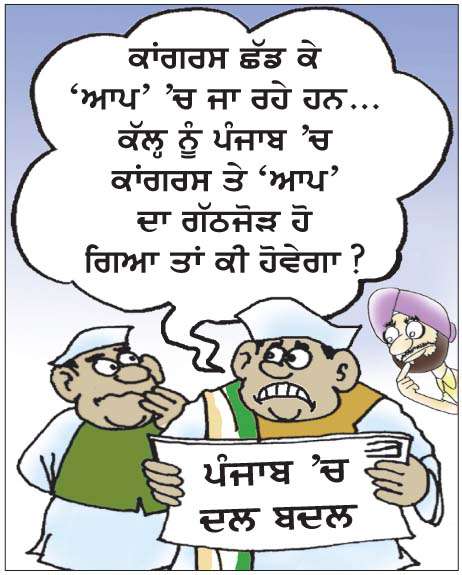 ਕਾਂਗਰਸ ਛੱਡ ਕੇ
‘ਆਪ’ ’ਚ ਜਾ ਰਹੇ ਹਨ...
ਕੱਲ੍ਹ ਨੂੰ ਪੰਜਾਬ ’ਚ
ਕਾਂਗਰਸ ਤੇ ‘ਆਪ’
ਦਾ ਗੱਠਜੋੜ ਹੋ
ਗਿਆ ਤਾਂ ਕੀ ਹੋਵੇਗਾ ?
ਪੰਜਾਬ ’ਚ
ਦਲ ਬਦਲ